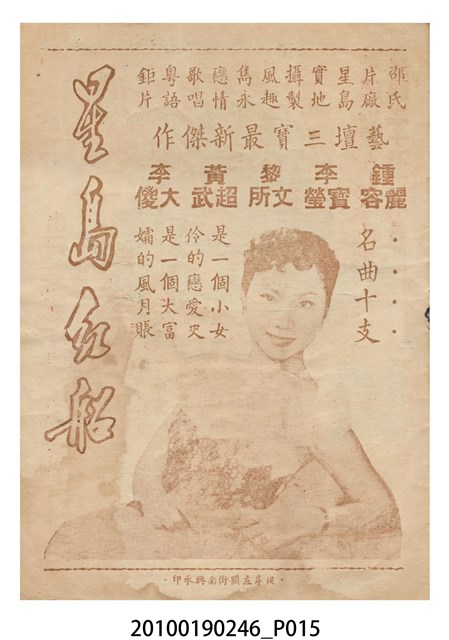 邵氏片廠星島實地攝製風趣雋永戀情歌唱粵語鉅片
藝壇三寶最新傑作
鍾麗容
李寶瑩
黎文所
黃超武
李大傻
名曲十支
是一個小女
伶的戀愛史
是一個大富
孀的風月賬
星島紅船
街南興承印
20100190246_P015